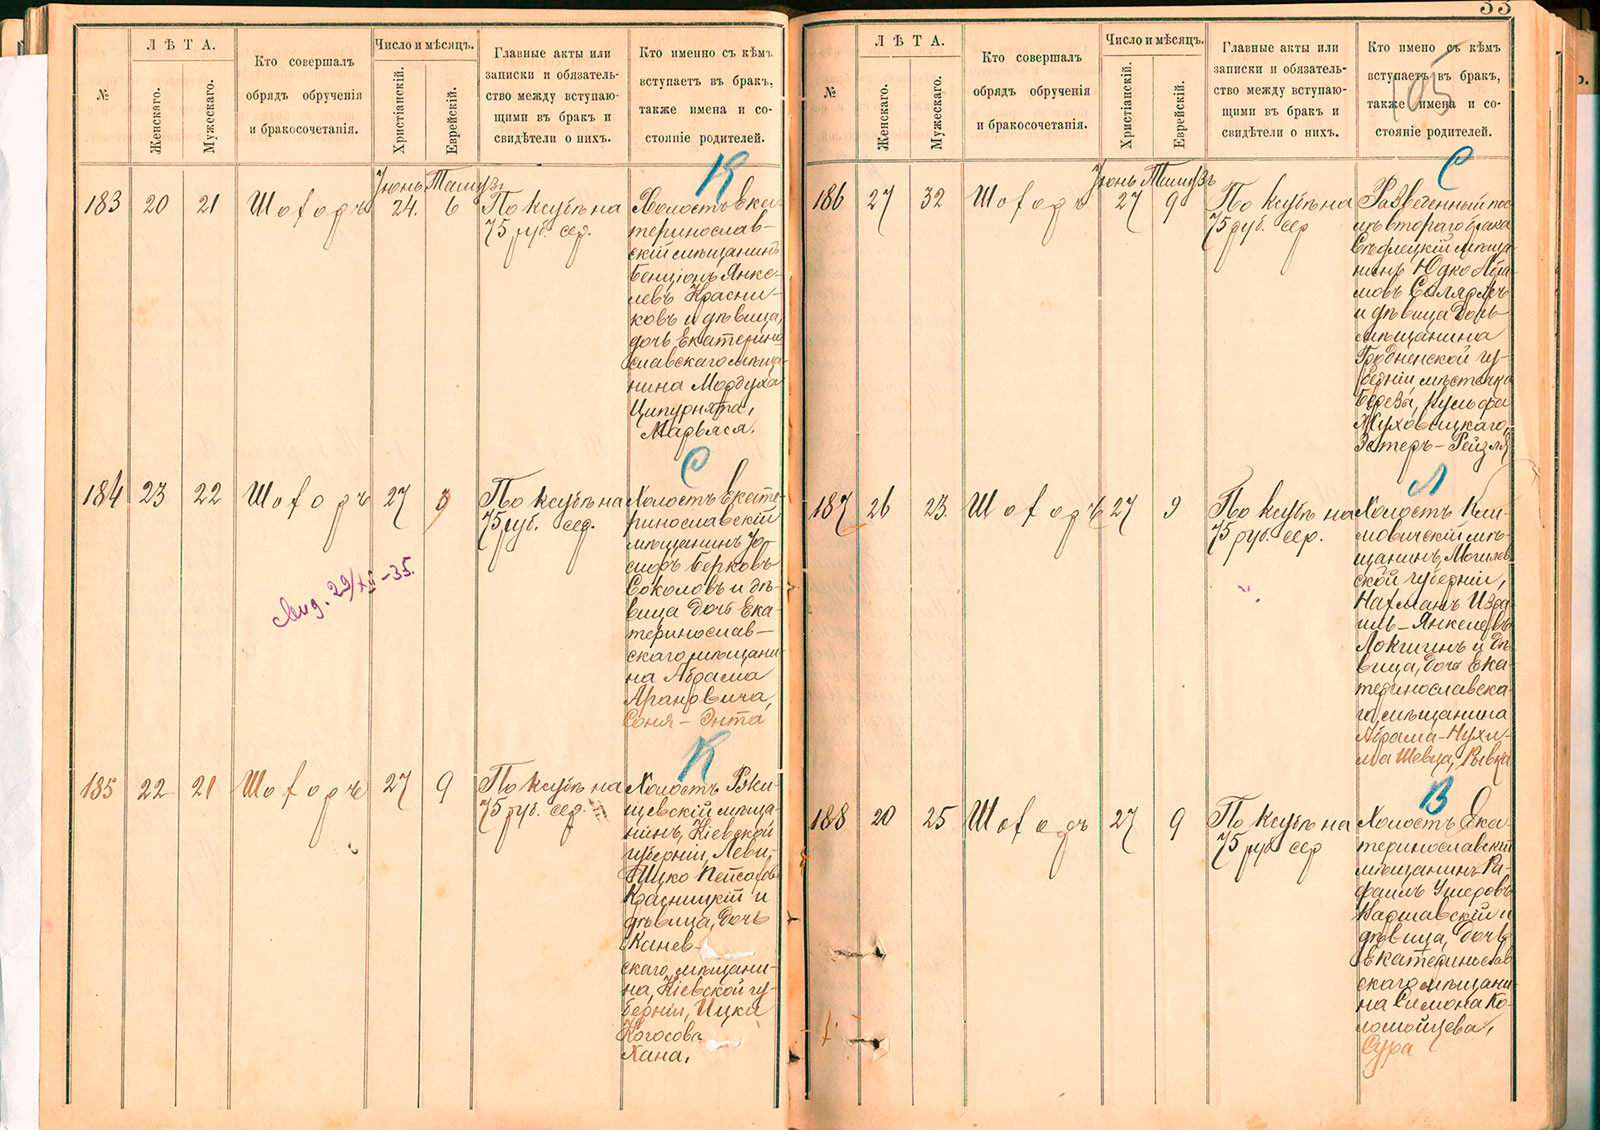 33
105
№
ЛѢТА.
Женскаго.
Мужескаго.
Кто совершалъ
обрядъ обрученія
и бракосочетанія.
Число и мѣсяцъ.
Христіанскій.
Еврейскій.
Главные акты или
записки и обязатель-
ство между вступаю-
щими въ бракъ и
свидѣтели о нихъ.
Кто именно съ кѣмъ
вступаетъ въ бракъ,
также имена и со-
стояніе родителей.
К
Іюнь Тамузъ
183 20 21 Шохоръ 24. 6 По ксубѣ на
75 руб. сер.
Холостъ Ека-
теринослав-
скій мѣщанинъ
Бенціонъ Янке-
левъ Красни-
ковъ и дѣвица,
дочь Екатерино-
славскаго мѣща-
нина Мордуха
Ципурнята,
Марьяся.
С
184 23 22 Шохоръ 27 9 По ксубѣ на
75 руб. сер.
Холостъ Екате-
ринославскій
мѣщанинъ
Берковъ
Соколовъ и дѣ-
вица дочь Ека-
теринослав-
скаго мѣщани-
на Абрама
Арановича,
Соня-Энта
29/XII-35.
К
185 22 21 Шохоръ 27 9 По ксубѣ на
75 руб. сер.
Холостъ Ржи-
щевскій мѣща-
нинъ, Кіевской
губерніи, Леви-
Ицко Пейсаховъ
Красницкій и
дѣвица, дочь
Канев-
скаго мѣщани-
на, Кіевской гу-
берніи, Ицки
Когосова
Хана,
№
ЛѢТА.
Женскаго.
Мужескаго.
Кто совершалъ
обрядъ обрученія
и бракосочетанія.
Число и мѣсяцъ.
Христіанскій.
Еврейскій.
Главные акты или
записки и обязатель-
ство между вступаю-
щими въ бракъ и
свидѣтели о нихъ.
Кто имено съ кѣмъ
вступаетъ въ бракъ,
также имена и со-
стояніе родителей.
С
Іюнь Тамузъ
186 27 32 Шохоръ 27 9 По ксубѣ на
75 руб. сер
Разведенный пос-
лѣ втораго брака
Сѣдлецкій мѣща-
нинъ Юдко Абра-
мовъ Столяржъ
и дѣвица дочь
мѣщанина
Гродненской гу-
берніи, мѣстечка
Березы, Вульфа
Жуховицкаго,
Эстеръ-Рейзля
Л
187 26 23. Шохоръ 27 9 По ксубѣ на
75 руб. сер.
Холостъ Кли-
мовичскій мѣ-
щанинъ, Могилев-
ской губерніи,
Нахманъ Изра-
иль-Янкелевъ
Локшинъ и дѣ-
вица, дочь Ека-
теринославска-
го, мѣщанина
Абрама-Нухи-
ма Шевца, Рывка
В
188 20 25 Шохоръ 27 9 По ксубѣ на
75 руб сер
Холостъ Ека-
теринославскій
мѣщанинъ Ра-
фаилъ Ушеровъ
Варшавскій и
дѣвица, дочь
Екатеринослав-
скаго мѣщани-
на Симона Ко-
ломойцева,
Сура